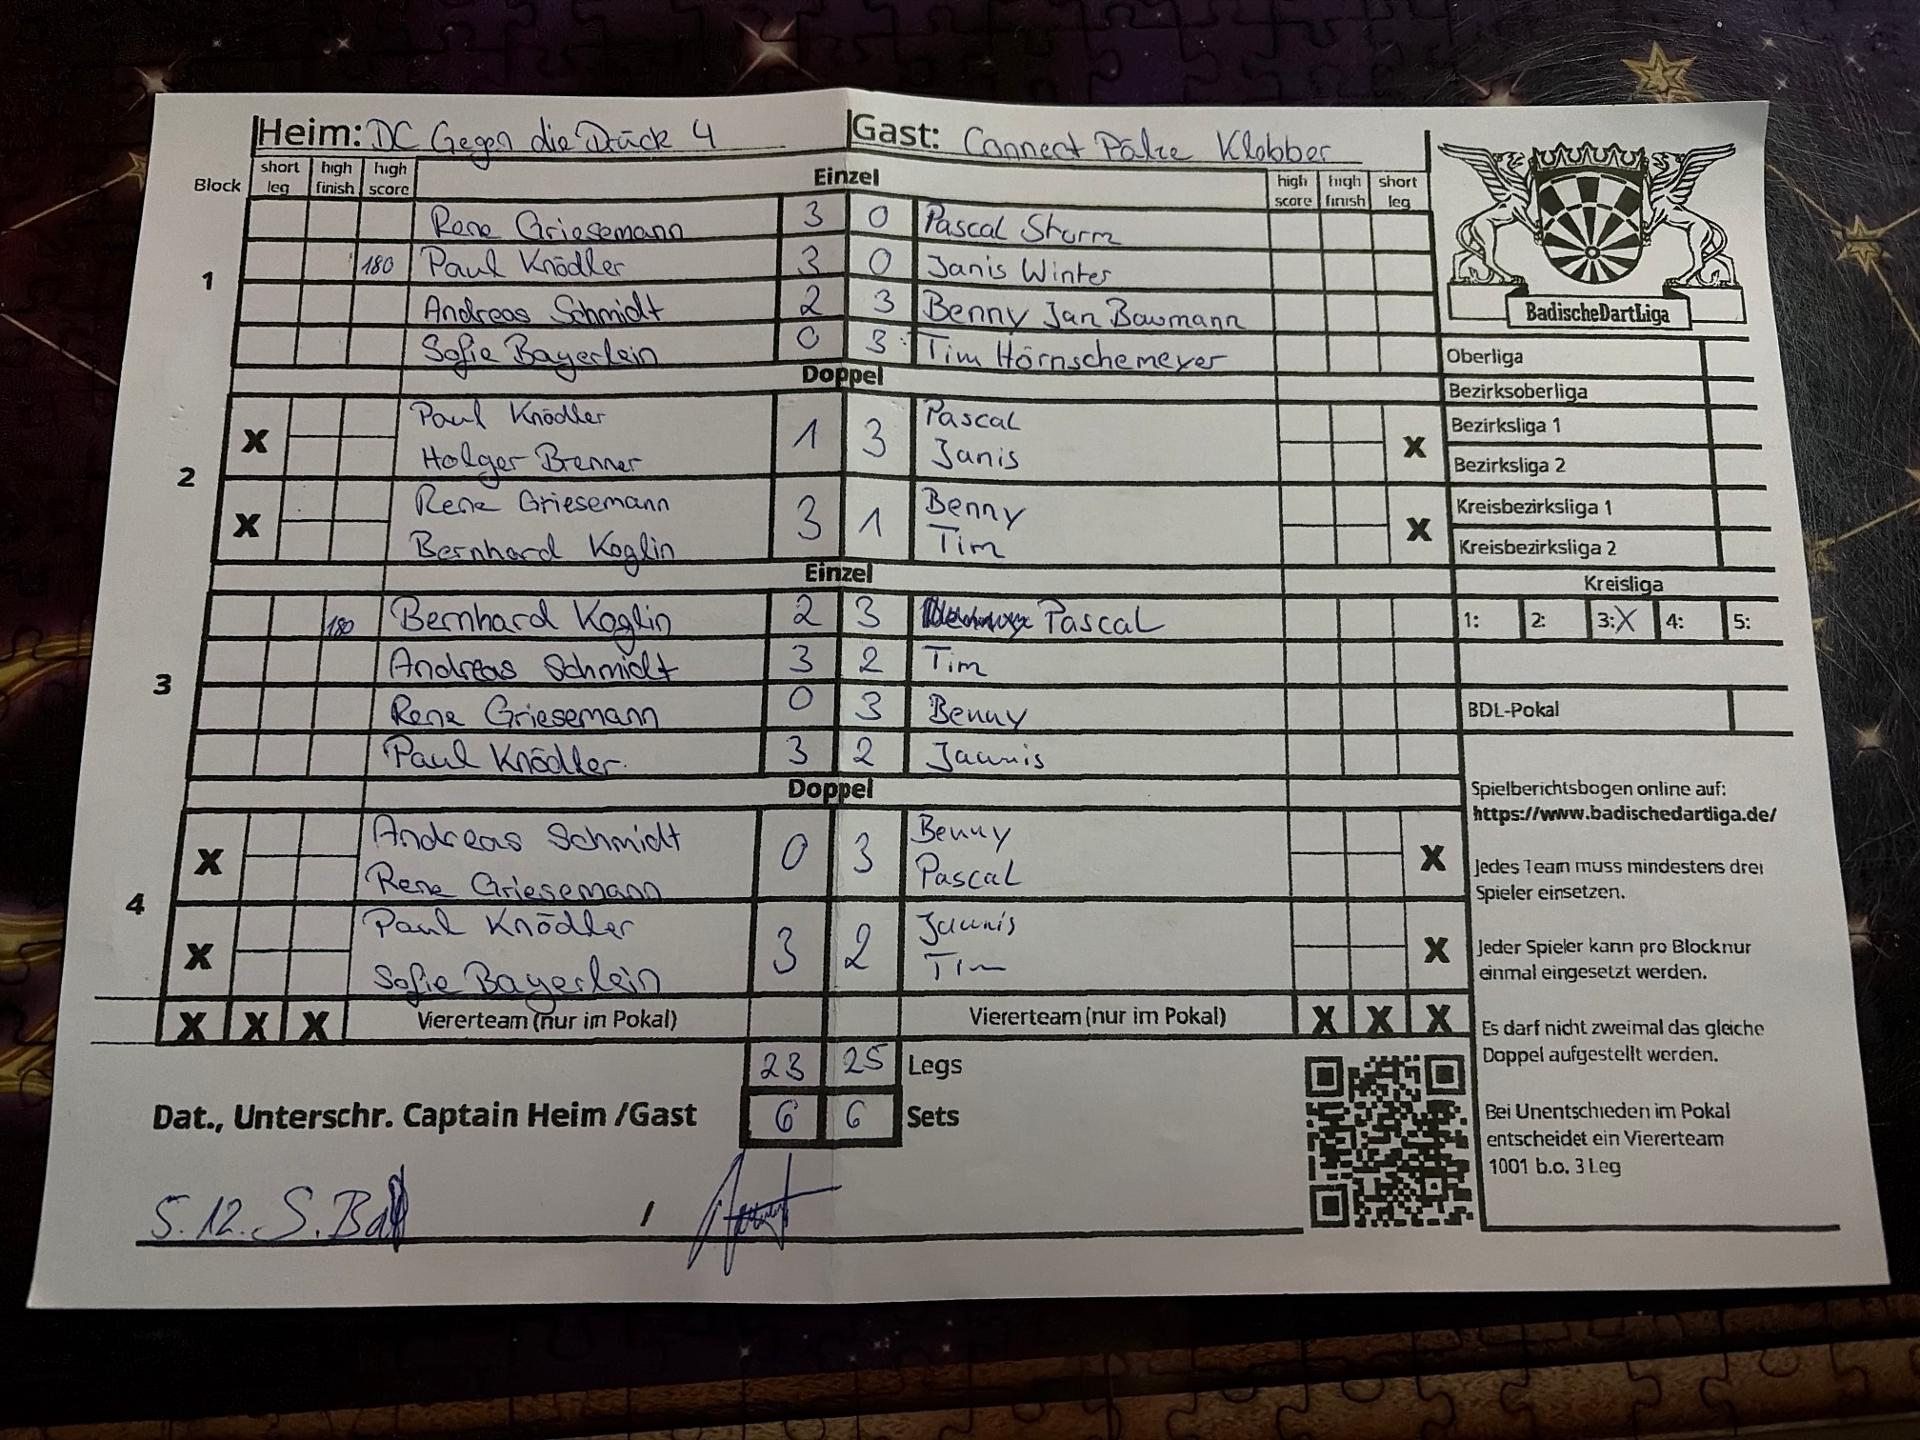 Heim: DC Gegen die Drück 4 Gast: Connect Pälze Klobber
Block short leg high finish high score Einzel high score high finish short leg
1
Rene Griesemann 3 0 Pascal Sturm
180 Paul Knödler 3 0 Janis Winter
Andreas Schmidt 2 3 Benny Jan Baumann
Sofie Bayerlein 0 3 Tim Hörnschemeyer
Doppel
2
X Paul Knödler 1 3 Pascal X
Holger Brenner Janis
X Rene Griesemann 3 1 Benny X
Bernhard Koglin Tim
Einzel
3
180 Bernhard Koglin 2 3 Pascal
Andreas Schmidt 3 2 Tim
Rene Griesemann 0 3 Benny
Paul Knödler 3 2 Jannis
Doppel
4
X Andreas Schmidt 0 3 Benny X
Rene Griesemann Pascal
X Paul Knödler 3 2 Jannis X
Sofie Bayerlein Tim
X X X Viererteam (nur im Pokal) Viererteam (nur im Pokal) X X X
23 25 Legs
Dat., Unterschr. Captain Heim /Gast 6 6 Sets
5.12. /
BadischeDartLiga
Oberliga
Bezirksoberliga
Bezirksliga 1
Bezirksliga 2
Kreisbezirksliga 1
Kreisbezirksliga 2
Kreisliga
1: 2: 3:X 4: 5:
BDL-Pokal
Spielberichtsbogen online auf:
https://www.badischedartliga.de/
Jedes Team muss mindestens drei
Spieler einsetzen.
Jeder Spieler kann pro Blocknur
einmal eingesetzt werden.
Es darf nicht zweimal das gleiche
Doppel aufgestellt werden.
Bei Unentschieden im Pokal
entscheidet ein Viererteam
1001 b.o. 3 Leg